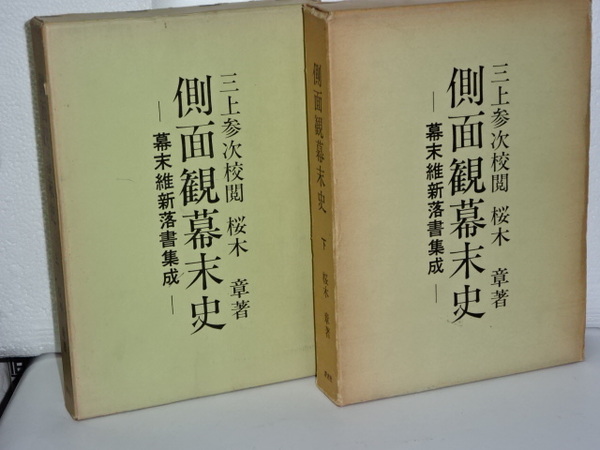 三上参次校閲 桜木 章著
側面観幕末史
―幕末維新落書集成―
側面観幕末史 下 桜木 章著
三上参次校閲 桜木 章著
側面観幕末史
―幕末維新落書集成―